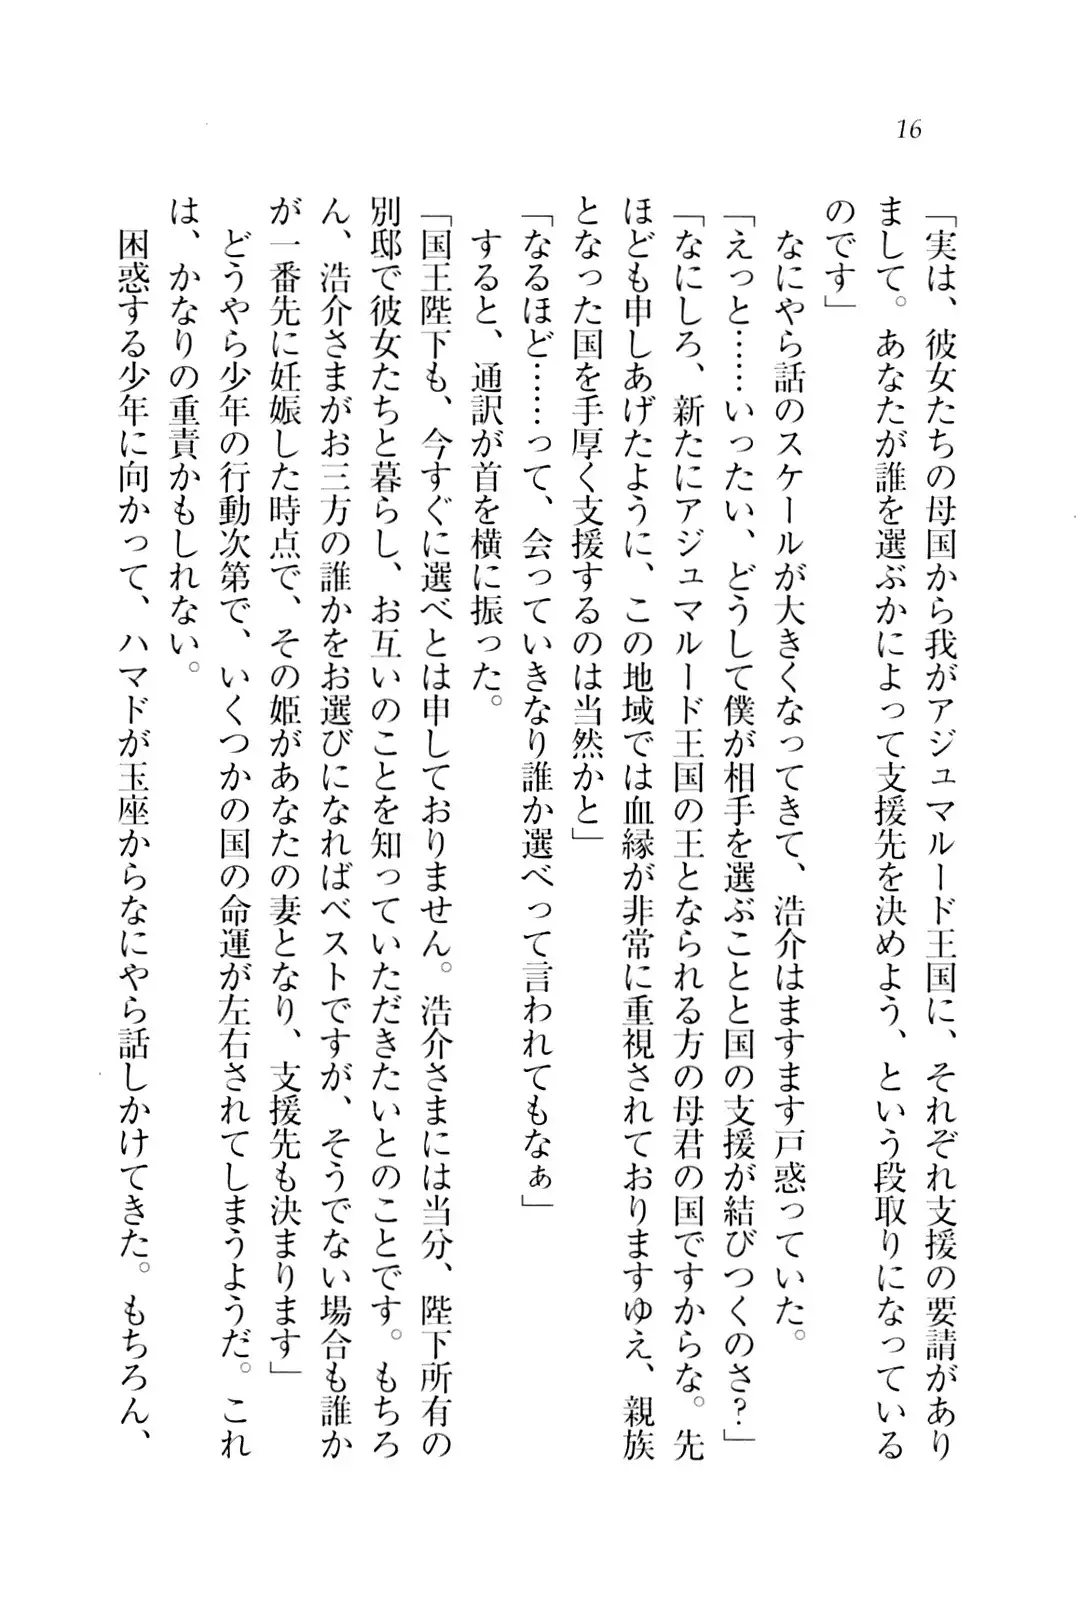 16
「実は、彼女たちの母国から我がアジュマルード王国に、それぞれ支援の要請があり
まして。あなたが誰を選ぶかによって支援先を決めよう、という段取りになっている
のです」
なにやら話のスケールが大きくなってきて、浩介はますます戸惑っていた。
「えっと……いったい、どうして僕が相手を選ぶことと国の支援が結びつくのさ？」
「なにしろ、新たにアジュマルード王国の王となられる方の母君の国ですからな。先
ほども申しあげたように、この地域では血縁が非常に重視されておりますゆえ、親族
となった国を手厚く支援するのは当然かと」
「なるほど……って、会っていきなり誰か選べって言われてもなぁ」
すると、通訳が首を横に振った。
「国王陛下も、今すぐに選べとは申しておりません。浩介さまには当分、陛下所有の
別邸で彼女たちと暮らし、お互いのことを知っていただきたいとのことです。もちろ
ん、浩介さまがお三方の誰かをお選びになればベストですが、そうでない場合も誰か
が一番先に妊娠した時点で、その姫があなたの妻となり、支援先も決まります」
どうやら少年の行動次第で、いくつかの国の命運が左右されてしまうようだ。これ
は、かなりの重責かもしれない。
困惑する少年に向かって、ハマドが玉座からなにやら話しかけてきた。もちろん、